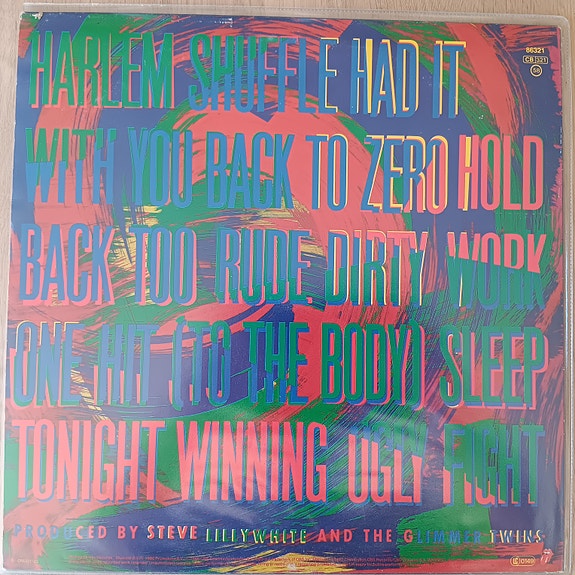 HARLEM SHUFFLE HAD IT
86321
CB 321
WITH YOU BACK TO ZERO HOLD
BACK TOO RUDE DIRTY WORK
ONE HIT (TO THE BODY) SLEEP
TONIGHT WINNING UGLY FIGHT
PRODUCED BY STEVE LILLYWHITE AND THE GLIMMER TWINS